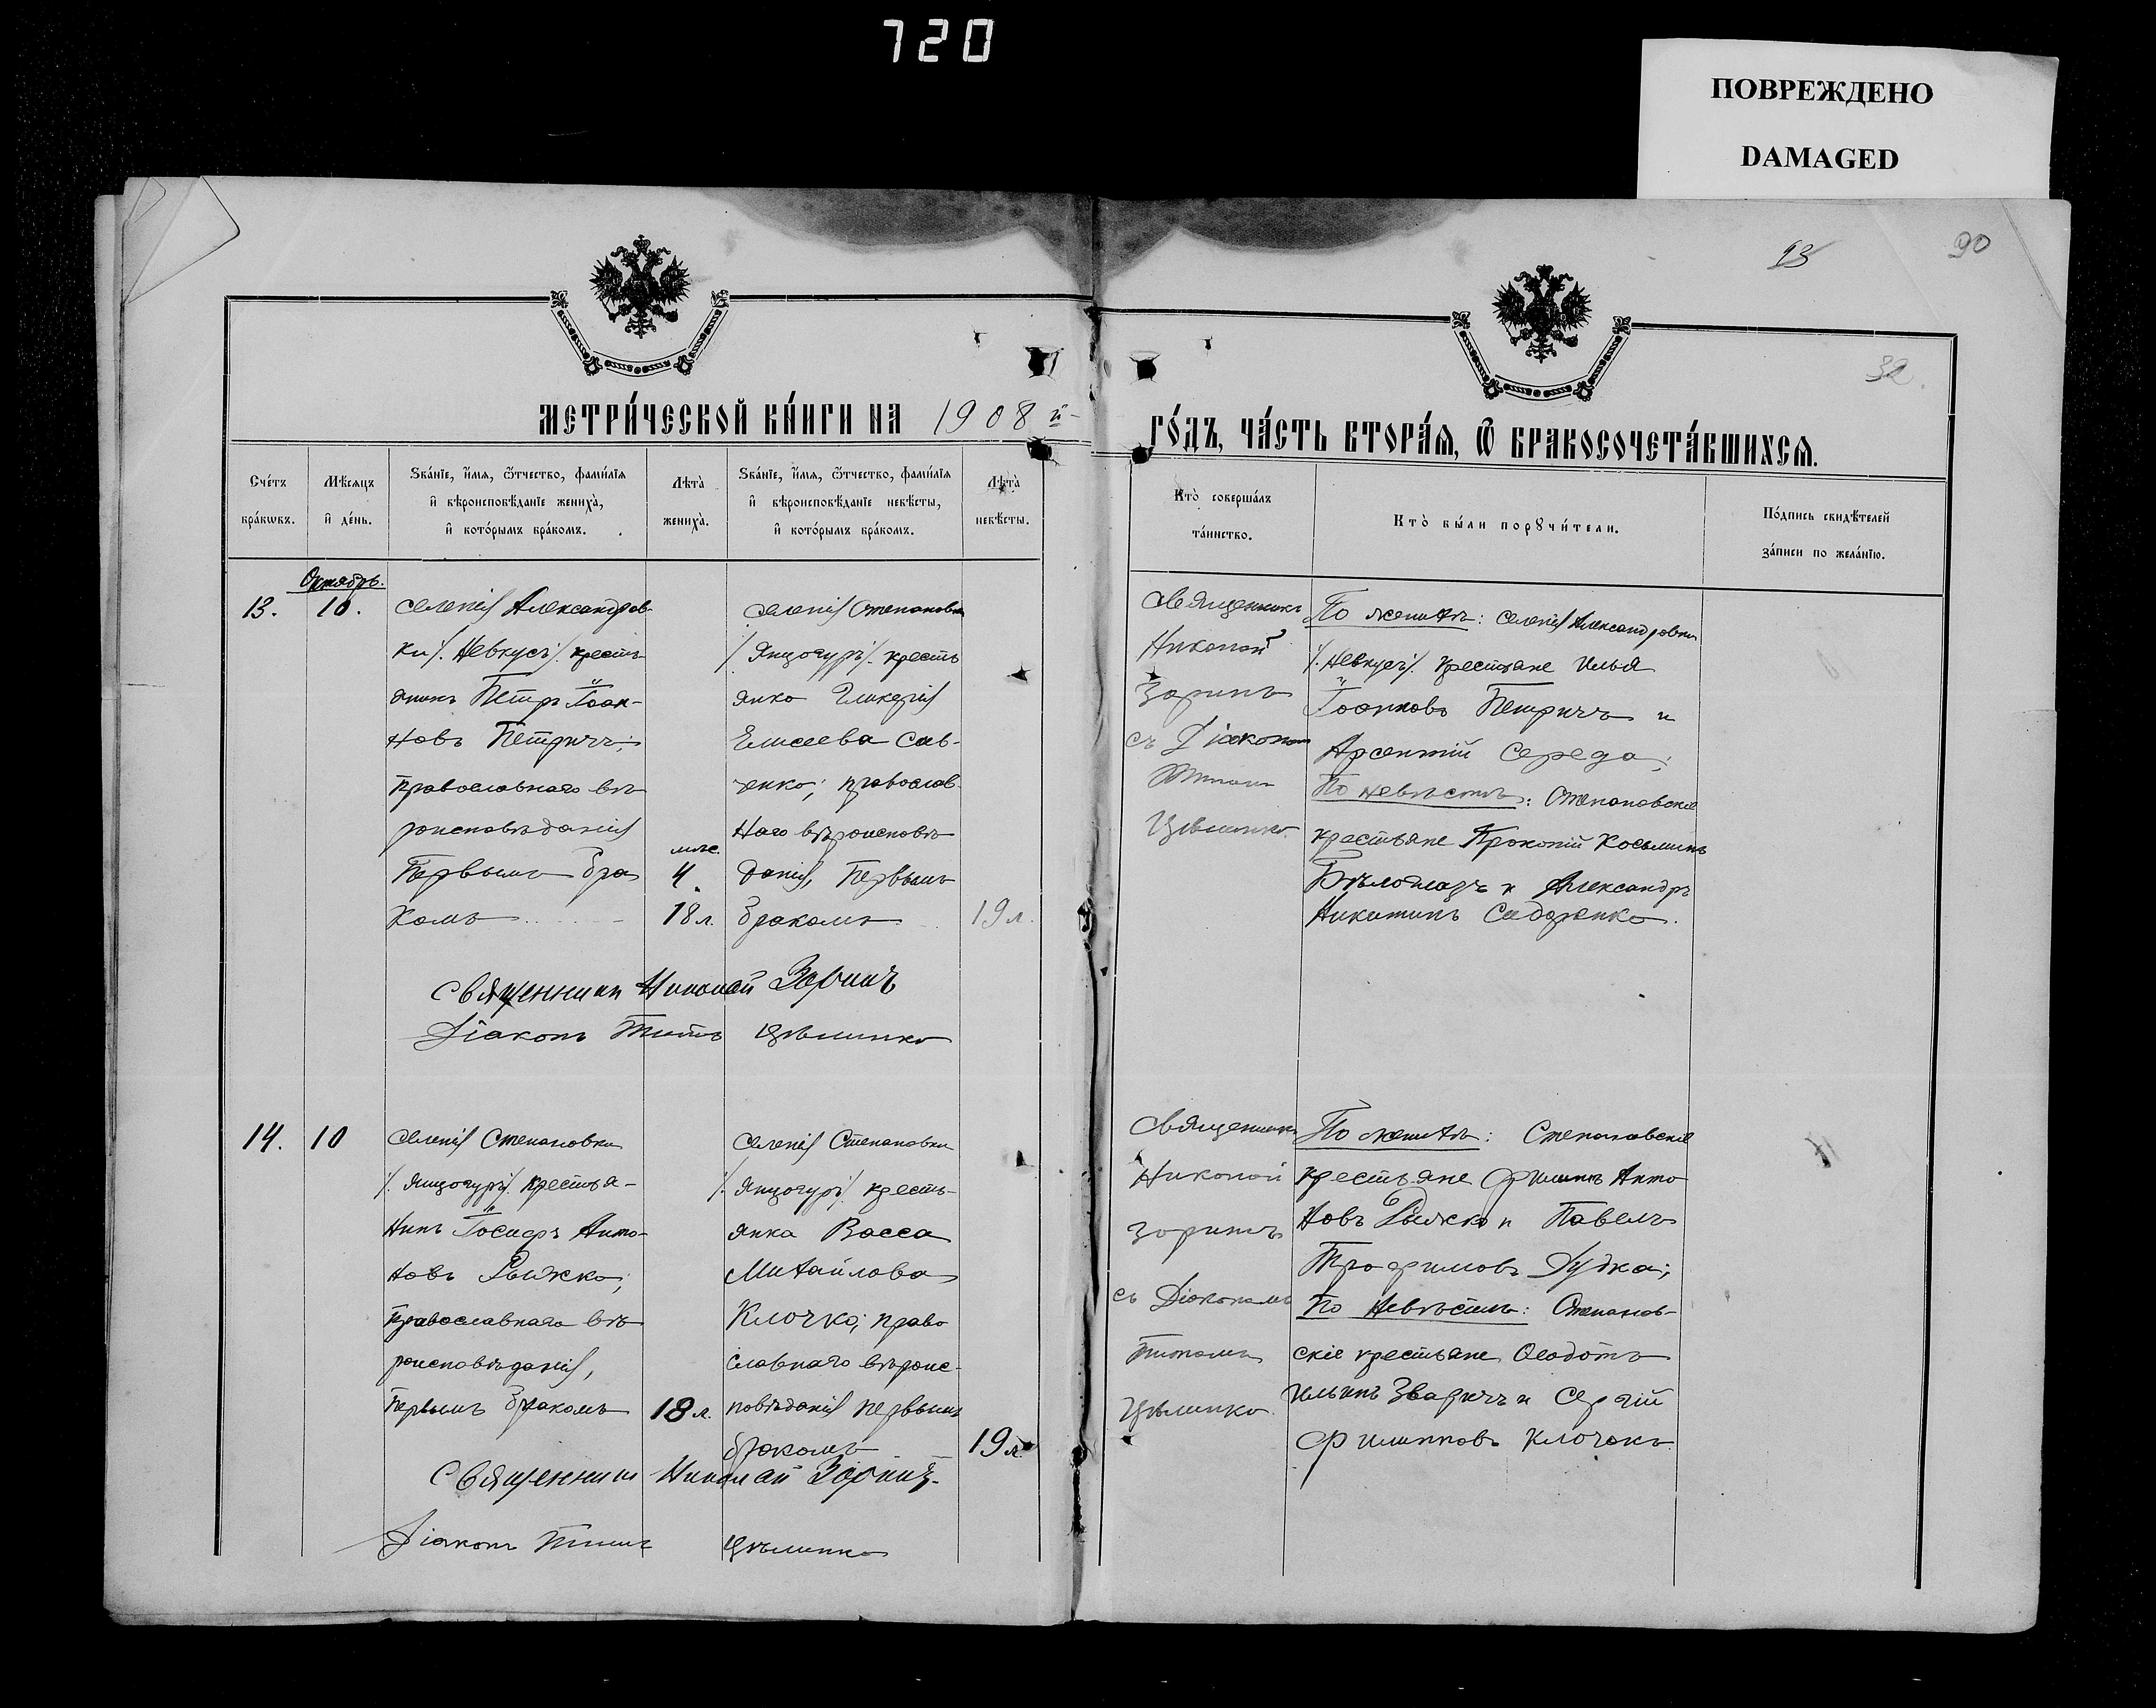 720
ПОВРЕЖДЕНО
DAMAGED
93
90
32.
МЕТРИ́ЧЕСКОЙ КНИ́ГИ НА 1908 й
ГО́ДЪ, ЧА́СТЬ ВТОРА́Ѧ, Ѽ БРАКОСОЧЕТА́ВШИХСѦ.
Сче́тъ бра́кѡвъ.
Мѣ́сяцъ и҆ де́нь.
Ѕва́нїе, и҆́мя, ѻ҆́тчество, фами́лїя и҆ вѣроисповѣ́данїе жениха̀, и҆ кото́рымъ бра́комъ.
Лѣта̀ жениха̀.
Ѕва́нїе, и҆́мя, ѻ҆́тчество, фами́лїя и҆ вѣроисповѣ́данїе невѣ́сты, и҆ кото́рымъ бра́комъ.
Лѣта̀ невѣ́сты.
Кто̀ соверша́лъ та́инство.
Кто̀ бы́ли порꙋчи́тели.
По́дпись свидѣ́телей за́писи по жела́нїю.
Октябрь.
13.
10.
селенія Александров-
ки /. Невкусъ/. кресть-
янинъ Петръ Іоан-
новъ Петричъ;
православнаго вѣ-
роисповѣданія
Первымъ бра
комъ
мѣс.
4
18 л.
селенія Степановки
/. Яицогуръ/. кресть
янка Гликерія
Елисеева Сав-
ченко; православ-
наго вѣроисповѣ
данія, Первымъ
бракомъ
19 л.
Священникъ
Николай
Зоринъ
съ Діакономъ
Цѣлинко.
По женихѣ: селенія Александровки
/. Невкусъ/. крестьяне Илья
Іоанновъ Петричъ и
Арсентій Середа;
По невѣстѣ: Степановскіе
крестьяне Прокопій Косьминъ
Бѣлоглазъ и Александръ
Никитинъ Сидоренко.
Священникъ Николай Зоринъ
Діаконъ Титъ Цѣлинко
14.
10
селенія Степановки
/. Яицогуръ/. крестья-
нинъ Іосифъ Анто-
новъ Рыжко;
православнаго вѣ
роисповѣданія,
Первымъ бракомъ
18 л.
селенія Степановки
/. Яицогуръ/. кресть-
янка Васса
Михайлова
Клочко; право
славнаго вѣроис-
повѣданія первымъ
бракомъ
19 л.
Священникъ
Николай
Зоринъ
съ Діакономъ
Титомъ
Цѣлинко.
По женихѣ: Степановскіе
крестьяне Филиппъ Анто
новъ Рыжко и Павелъ
Трофимовъ Дудка;
По невѣстѣ: Степанов-
скіе крестьяне Ѳеодотъ
Ильинъ Зваричъ и Сергій
Филипповъ Клочокъ.
Священникъ Николай Зоринъ.
Діаконъ Титъ Цѣлинко